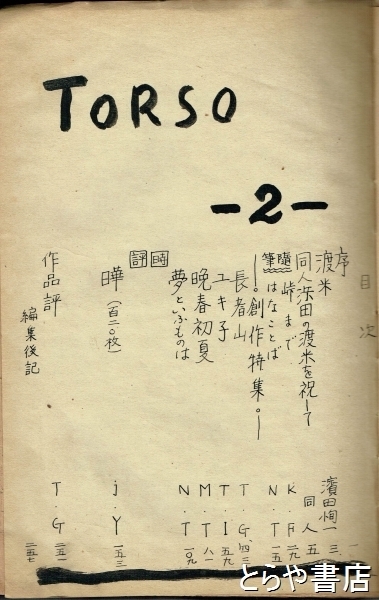 TORSO
-2-
目次
序 一
渡米 濱田恂一 三
同人浜田の渡米を祝して 同人 五
峠まで K・F 一九
隨筆 はなことば N・T 一五
—。創作特集。—
長者山 T・G 四三
ユキ子 T・I 五九
晩春初夏 M・T 八一
夢といふものは N・T 一〇九
時評
曄(百二〇枚) j・Y 一五三
作品評 T・G 二五一
編集後記 二五七
とらや書店